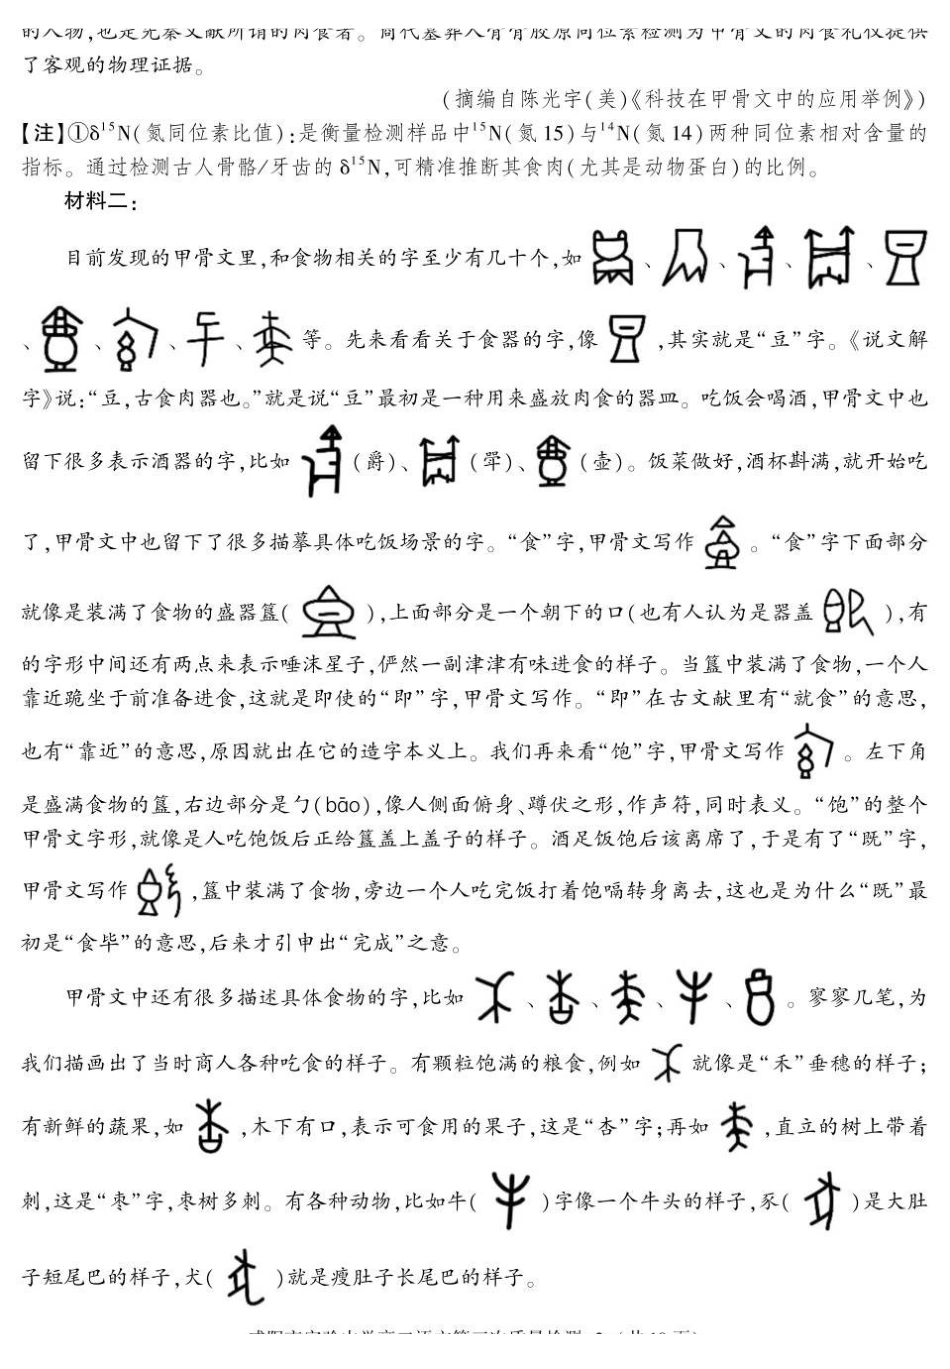 的人物,也是先秦文献所谓的肉食者。商代墓葬人骨骨胶原同位素检测为甲骨文的肉食礼仪提供
了客观的物理证据。
(摘编自陈光宇(美)《科技在甲骨文中的应用举例》)
【注】①δ¹⁵N(氮同位素比值):是衡量检测样品中¹⁵N(氮15)与¹⁴N(氮14)两种同位素相对含量的
指标。通过检测古人骨骼/牙齿的δ¹⁵N,可精准推断其食肉(尤其是动物蛋白)的比例。
材料二:
目前发现的甲骨文里,和食物相关的字至少有几十个,如、、、、
、、、、等。先来看看关于食器的字,像,其实就是“豆”字。《说文解
字》说:“豆,古食肉器也。”就是说“豆”最初是一种用来盛放肉食的器皿。吃饭会喝酒,甲骨文中也
留下很多表示酒器的字,比如(爵)、(斝)、(壶)。饭菜做好,酒杯斟满,就开始吃
了,甲骨文中也留下了很多描摹具体吃饭场景的字。“食”字,甲骨文写作。“食”字下面部分
就像是装满了食物的盛器簋(),上面部分是一个朝下的口(也有人认为是器盖),有
的字形中间还有两点来表示唾沫星子,俨然一副津津有味进食的样子。当簋中装满了食物,一个人
靠近跪坐于前准备进食,这就是即使的“即”字,甲骨文写作。“即”在古文献里有“就食”的意思,
也有“靠近”的意思,原因就出在它的造字本义上。我们再来看“饱”字,甲骨文写作。左下角
是盛满食物的簋,右边部分是勹(bāo),像人侧面俯身、蹲伏之形,作声符,同时表义。“饱”的整个
甲骨文字形,就像是人吃饱饭后正给簋盖上盖子的样子。酒足饭饱后该离席了,于是有了“既”字,
甲骨文写作,簋中装满了食物,旁边一个人吃完饭打着饱嗝转身离去,这也是为什么“既”最
初是“食毕”的意思,后来才引申出“完成”之意。
甲骨文中还有很多描述具体食物的字,比如、、、、。寥寥几笔,为
我们描画出了当时商人各种吃食的样子。有颗粒饱满的粮食,例如就像是“禾”垂穗的样子;
有新鲜的蔬果,如,木下有口,表示可食用的果子,这是“杏”字;再如,直立的树上带着
刺,这是“枣”字,枣树多刺。有各种动物,比如牛()字像一个牛头的样子,豕()是大肚
子短尾巴的样子,犬()就是瘦肚子长尾巴的样子。